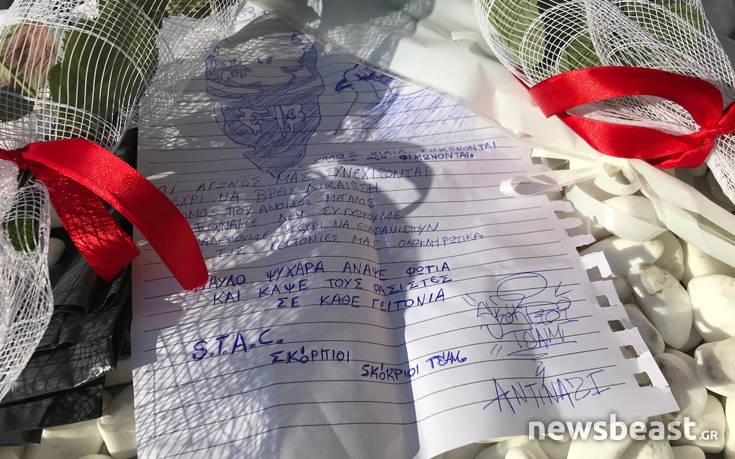 ΧΙΛΙΑ ΣΗΚΩΝΟΝΤΑΙ
ΔΕΝ ΦΙΜΩΝΟΝΤΑΙ.
ΟΙ ΑΓΩΝΕΣ ΜΑΣ ΣΥΝΕΧΙΖΟΝΤΑΙ
ΝΑ ΒΡΕΙΣ ΔΙΚΑΙΩΣΗ
ΠΟΥ ΑΝΟΙΞΕΣ ΜΕΓΑΛΟΣ
ΔΕΝ ΣΥΓΧΩΡΟΥΜΕ
ΝΑ ΕΞΑΦΑΝΙΣΤΟΥΝ
ΓΕΙΤΟΝΙΕΣ ΜΑΣ ΟΛΟΚΛΗΡΩΤΙΚΑ
ΠΑΥΛΟ ΨΥΧΑΡΑ ΑΝΑΨΕ ΦΩΤΙΑ
ΚΑΙ ΚΑΨΕ ΤΟΥΣ ΦΑΣΙΣΤΕΣ
ΣΕ ΚΑΘΕ ΓΕΙΤΟΝΙΑ
S.T.A.C.
ΣΚΟΡΠΙΟΙ
ΣΚΟΡΠΙΟΙ ΤΣΑΜΙ
ΤΣΑΜΙ
ANTINAZI
newsbeast.GR